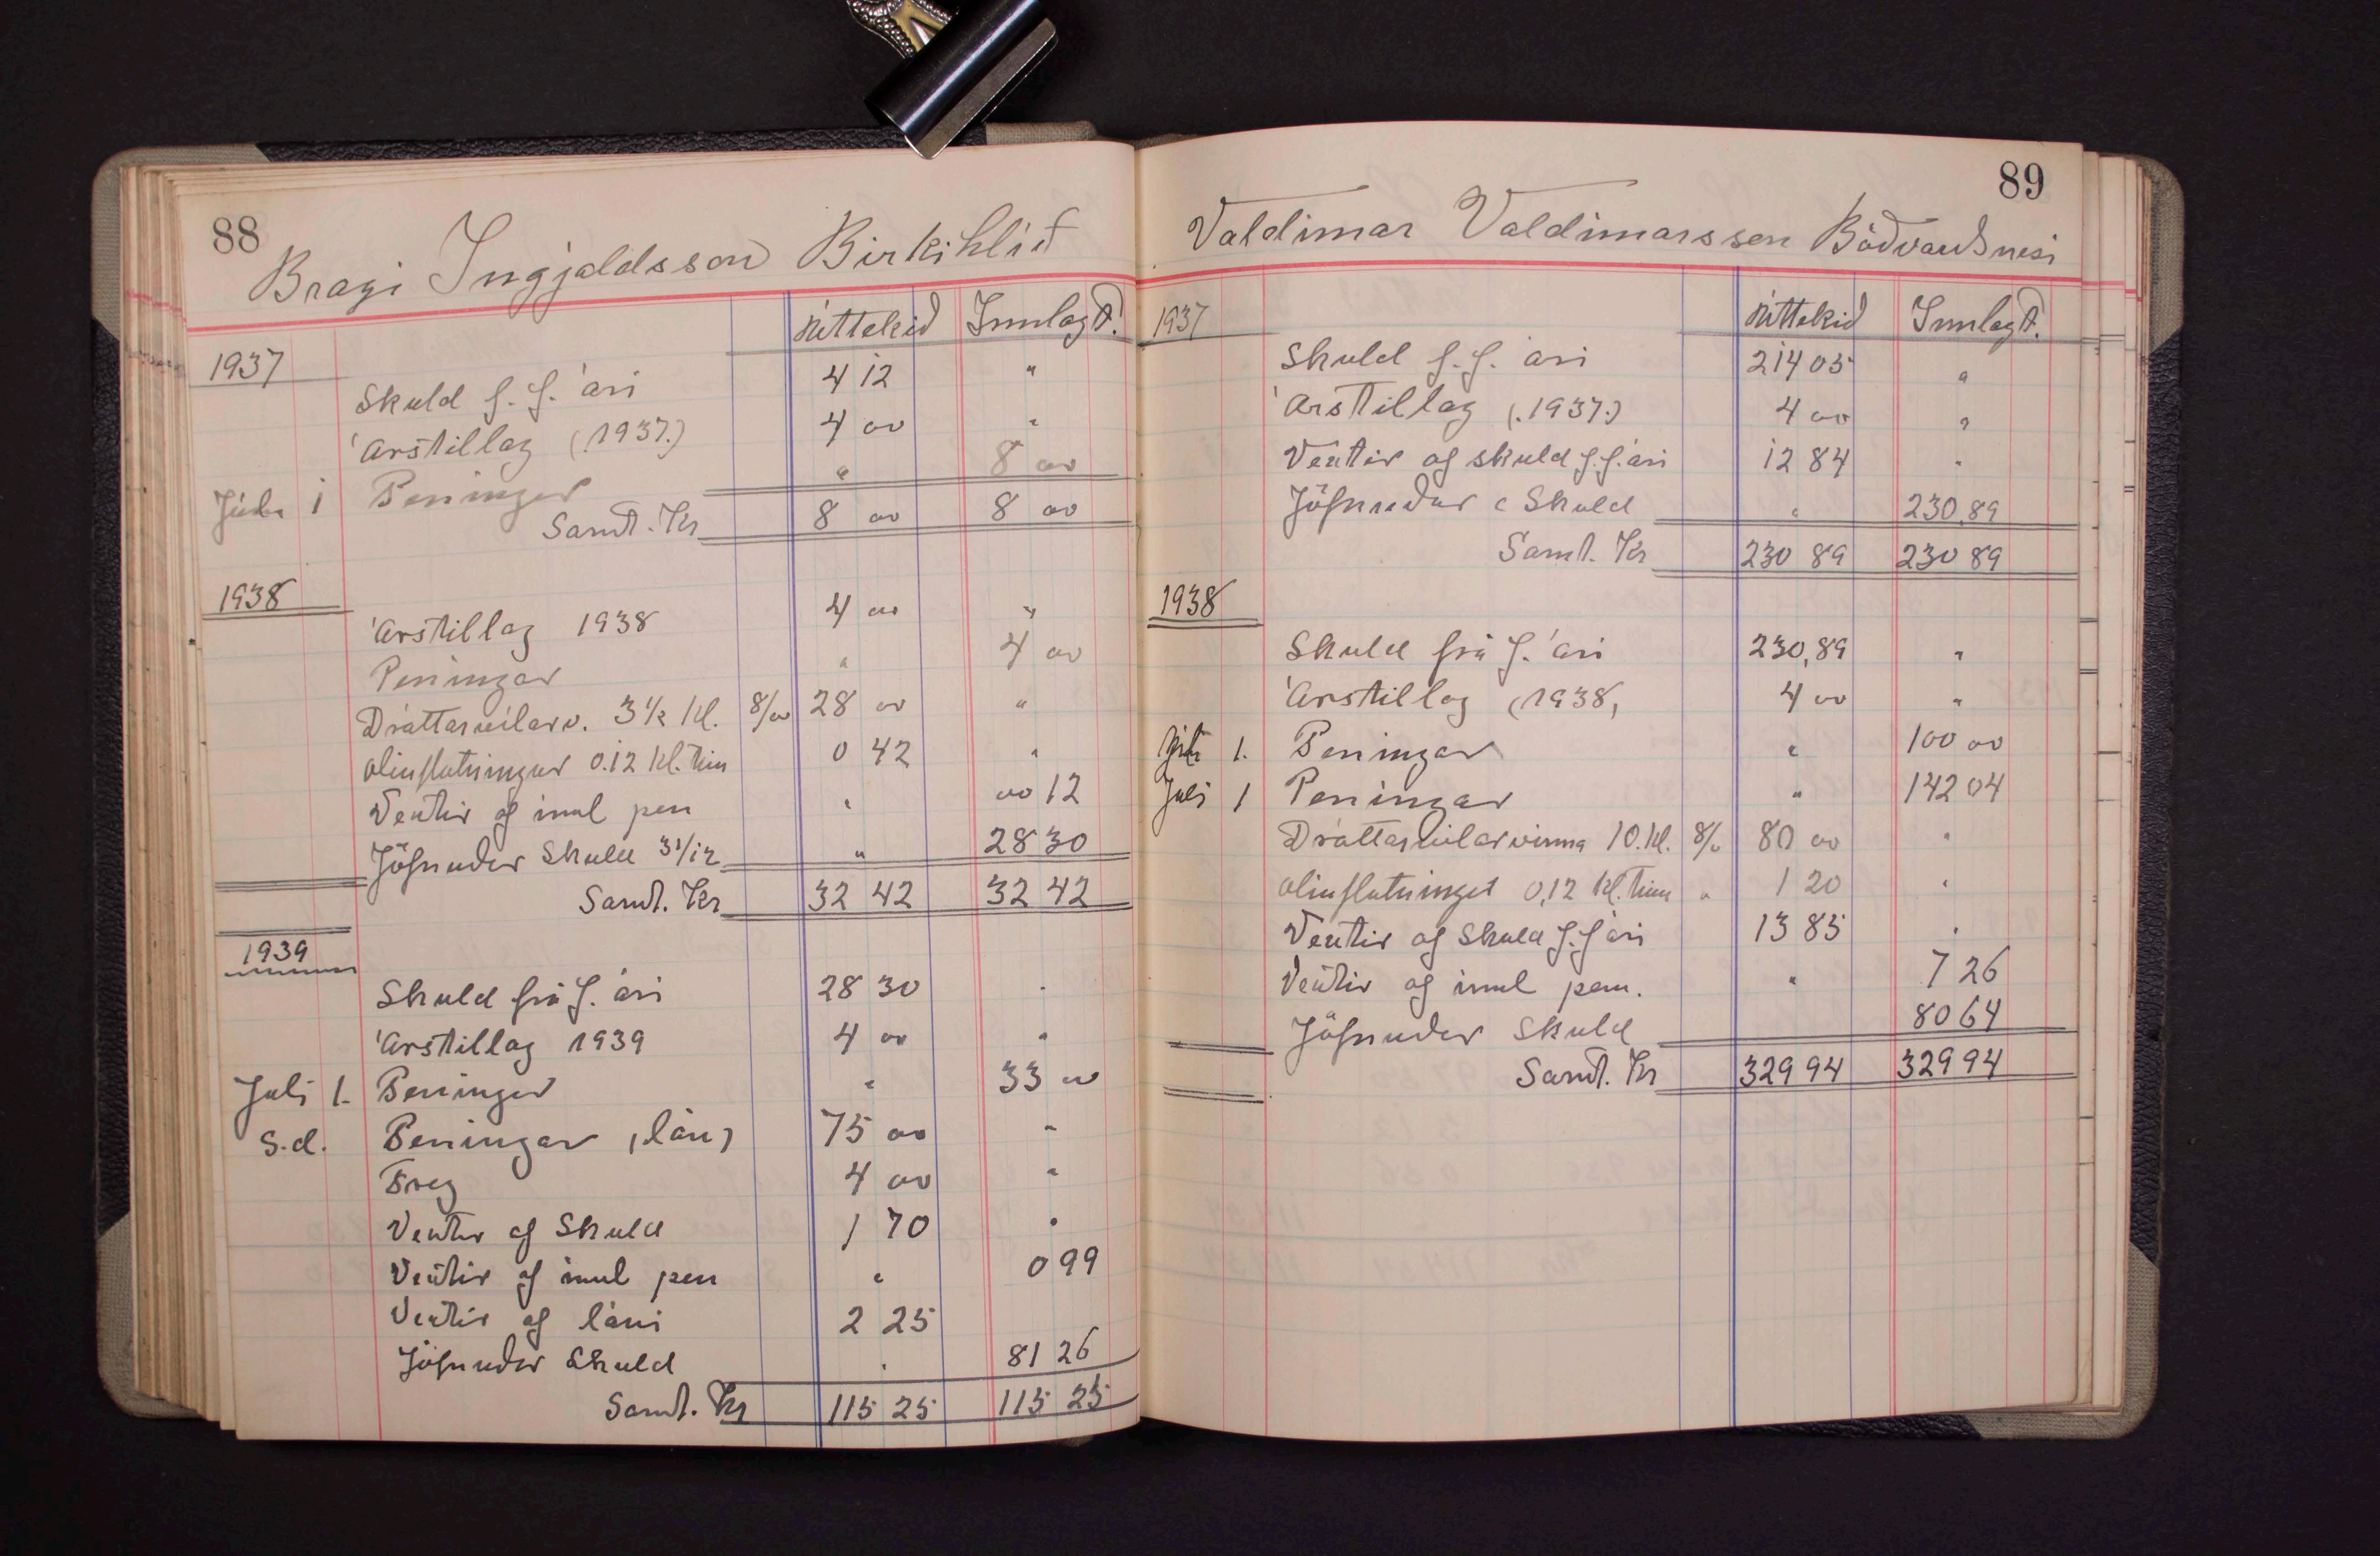 88
Bragi Ingjaldsson Birkihlíð
Úttekið Innlagt.
1937
Skuld f. f. ári 4 12 "
Árstillag (1937.) 4 00 "
Júní 1 Peningar " 8 00
Samt. Kr 8 00 8 00
1938
Árstillag 1938 4 00 "
Peningar " 4 00
Dráttarvélarv. 3 1/2 kl. 8/00 28 00 "
olíuflutningur 0.12 kl. tím 0 42 "
Vextir af innl pen " 00 12
Jöfnuður Skuld 31/12 " 28 30
Samt. Kr 32 42 32 42
1939
Skuld frá f. ári 28 30 "
Árstillag 1939 4 00 "
Julí 1. Peningar " 33 00
S.d. Peningar (lán) 75 00 "
Freg 4 00 "
Vextir af Skuld 1 70 "
Vextir af innl pen " 0 99
Vextir af láni 2 25
Jöfnuður Skuld " 81 26
Samt. Kr 115 25 115 25
89
Valdimar Valdimarsson Böðvarsnesi
1937 Úttekið Innlagt.
Skuld f. f. ári 214 05 "
Árstillag (.1937.) 4 00 "
Vextir af skuld f. f. ári 12 84 "
Jöfnuður Skuld " 230,89
Samt. Kr 230 89 230 89
1938
Skuld frá f. ári 230,89 "
Árstillag (1938, 4 00 "
1. Peningar " 100 00
Julí 1 Peningar " 142 04
Dráttarvélarvinna 10. kl. 8/00 80 00 "
olíuflutninget 0,12 kl. tím " 1 20 "
Vextir af Skuld f. f ári 13 85 "
Vextir af innl pen. " 7 26
Jöfnuður Skuld 80 64
Samt. Kr 329 94 329 94